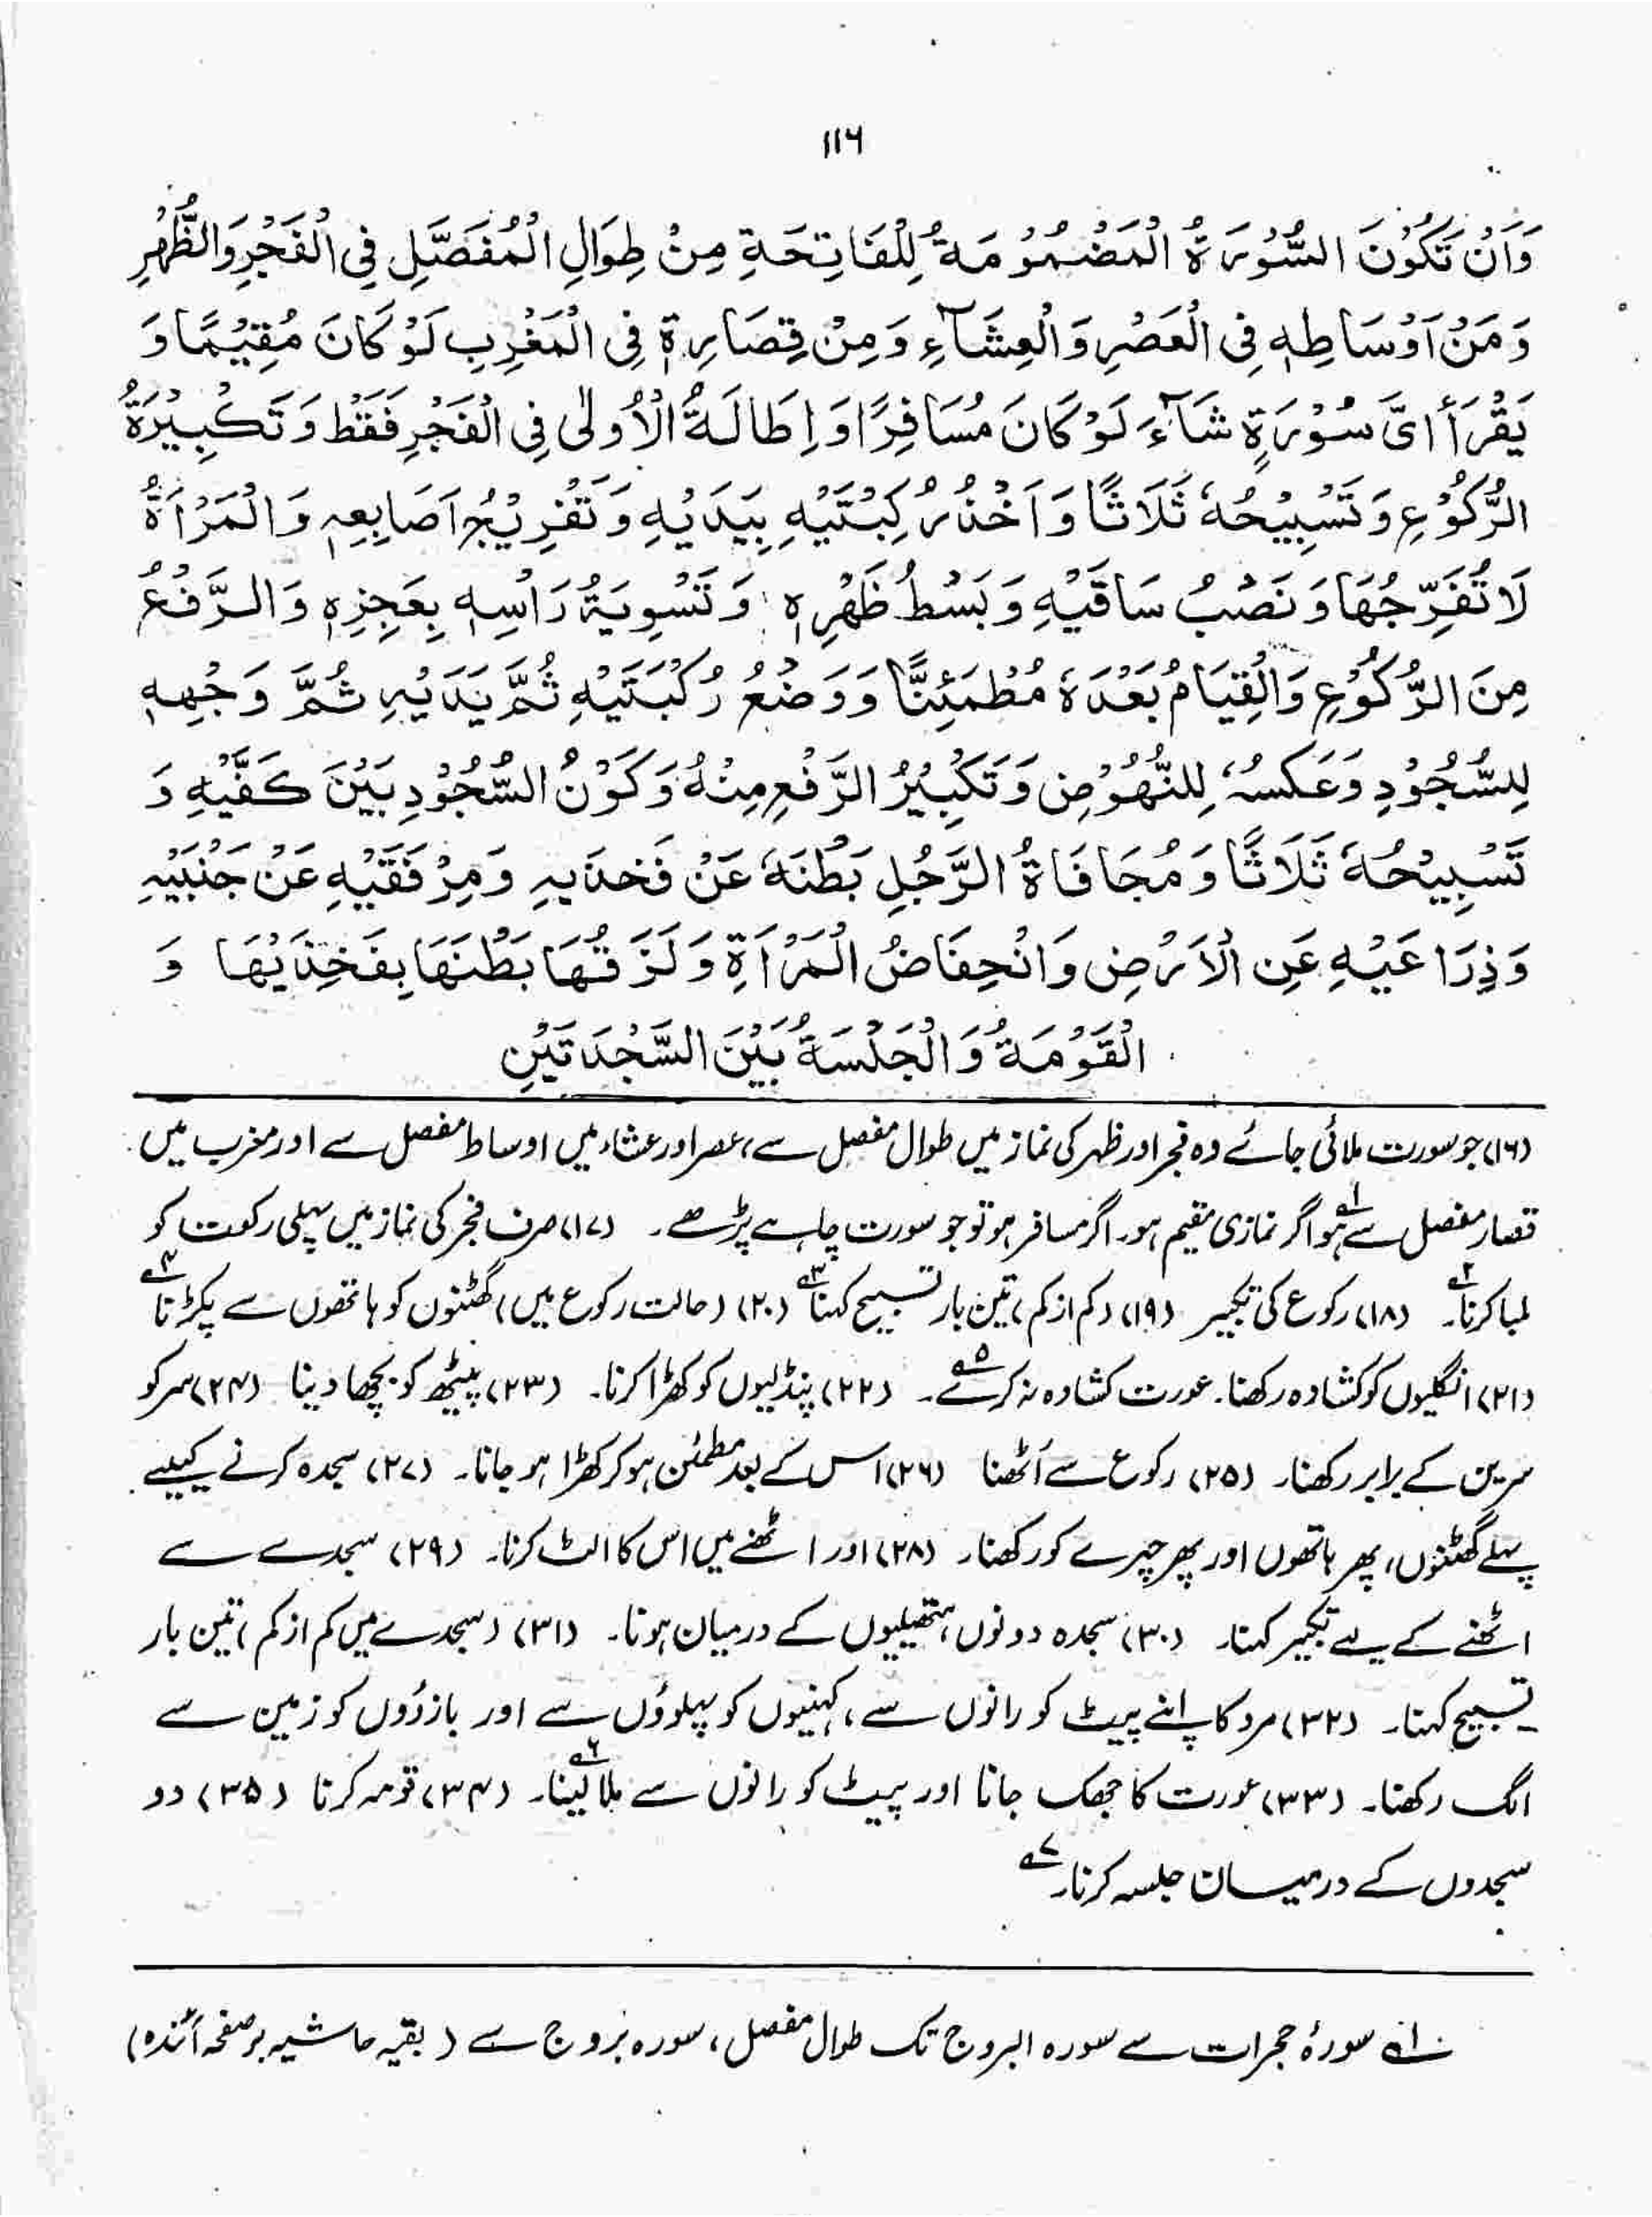 ۱۱۶
وَاَنْ تَكُوْنَ السُّوْرَةُ الْمَضْمُوْمَةُ لِلْفَاتِحَةِ مِنْ طِوَالِ الْمُفَصَّلِ فِى الْفَجْرِ وَالظُّهْرِ
وَمَنْ اَوْسَاطِهٖ فِى الْعَصْرِ وَالْعِشَآءِ وَمِنْ قِصَارِهٖ فِى الْمَغْرِبِ لَوْ كَانَ مُقِيْمًا وَ
يَقْرَأُ اَىَّ سُوْرَةٍ شَآءَ لَوْ كَانَ مُسَافِرًا وَ اِطَالَةُ الْاُوْلٰى فِى الْفَجْرِ فَقَطْ وَتَكْبِيْرَةُ
الرُّكُوْعِ وَتَسْبِيْحُهٗ ثَلَاثًا وَ اَخْذُ رُكْبَتَيْهِ بِيَدَيْهِ وَتَفْرِيْجُ اَصَابِعِهٖ وَالْمَرْاَةُ
لَا تُفَرِّجُهَا وَنَصْبُ سَاقَيْهِ وَبَسْطُ ظَهْرِهٖ وَتَسْوِيَةُ رَاْسِهٖ بِعَجِزِهٖ وَالرَّفْعُ
مِنَ الرُّكُوْعِ وَالْقِيَامُ بَعْدَهٗ مُطْمَئِنًّا وَوَضْعُ رُكْبَتَيْهِ ثُمَّ يَدَيْهِ ثُمَّ وَجْهِهٖ
لِلسُّجُوْدِ وَعَكسُهٗ لِلنُّهُوْضِ وَتَكْبِيْرُ الرَّفْعِ مِنْهُ وَكَوْنُ السُّجُوْدِ بَيْنَ كَفَّيْهِ وَ
تَسْبِيْحُهٗ ثَلَاثًا وَمُجَافَاةُ الرَّجُلِ بَطْنَهٗ عَنْ فَخذَيهِ وَمِرْفَقَيْهِ عَنْ جَنْبَيْهِ
وَذِرَاعَيْهِ عَنِ الْاَرْضِ وَانْخِفَاضُ الْمَرْاَةِ وَلَزَقُهَا بَطْنَهَا بِفَخِذَيْهَا وَ
الْقَوْمَةُ وَالْجَلْسَةُ بَيْنَ السَّجْدَتَيْنِ
(۱۶) جو سورت ملائی جائے وہ فجر اور ظہر کی نماز میں طوال مفصل سے، عصر اور عشاء میں اوساط مفصل سے اور مغرب میں
قصار مفصل سے ہو۱ اگر نمازی مقیم ہو۔ اگر مسافر ہو تو جو سورت چاہے پڑھے۔ (۱۷) صرف فجر کی نماز میں پہلی رکعت کو
لمبا کرنا۲۔ (۱۸) رکوع کی تکبیر (۱۹) (کم از کم) تین بار تسبیح کہنا۳ (۲۰) (حالت رکوع میں) گھٹنوں کو ہاتھوں سے پکڑنا۴
(۲۱) انگلیوں کو کشادہ رکھنا۔ عورت کشادہ نہ کرے۵۔ (۲۲) پنڈلیوں کو کھڑا کرنا۔ (۲۳) پیٹھ کو بچھا دینا (۲۴) سر کو
سرین کے برابر رکھنا۔ (۲۵) رکوع سے اُٹھنا (۲۶) اس کے بعد مطمئن ہو کر کھڑا ہو جانا۔ (۲۷) سجدہ کرنے کیلیے
پہلے گھٹنوں، پھر ہاتھوں اور پھر چہرے کو رکھنا۔ (۲۸) اور اٹھنے میں اس کا الٹ کرنا۔ (۲۹) سجدے سے
اٹھنے کے لیے تکبیر کہنا۔ (۳۰) سجدہ دونوں ہتھیلیوں کے درمیان ہونا۔ (۳۱) (سجدے میں کم از کم) تین بار
تسبیح کہنا۔ (۳۲) مرد کا اپنے پیٹ کو رانوں سے، کہنیوں کو پہلوؤں سے اور بازوؤں کو زمین سے
الگ رکھنا۔ (۳۳) عورت کا جھک جانا اور پیٹ کو رانوں سے ملا لینا۶۔ (۳۴) قومہ کرنا (۳۵) دو
سجدوں کے درمیان جلسہ کرنا۷۔
۱ سورۂ حجرات سے سورہ البروج تک طوال مفصل، سورہ بروج سے (بقیہ حاشیہ بر صفحہ آئندہ)